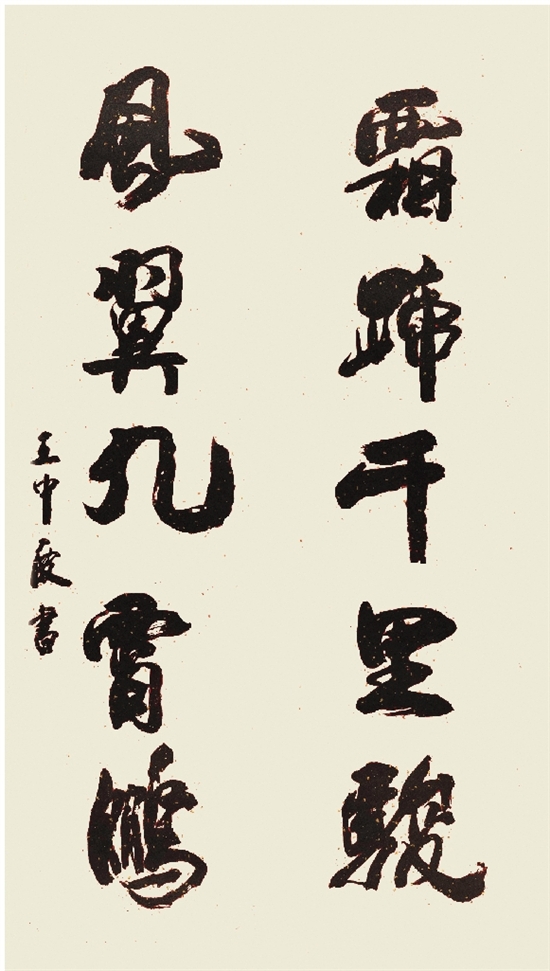 霜蹄千里駿
風翼九霄鵬
王中殷書